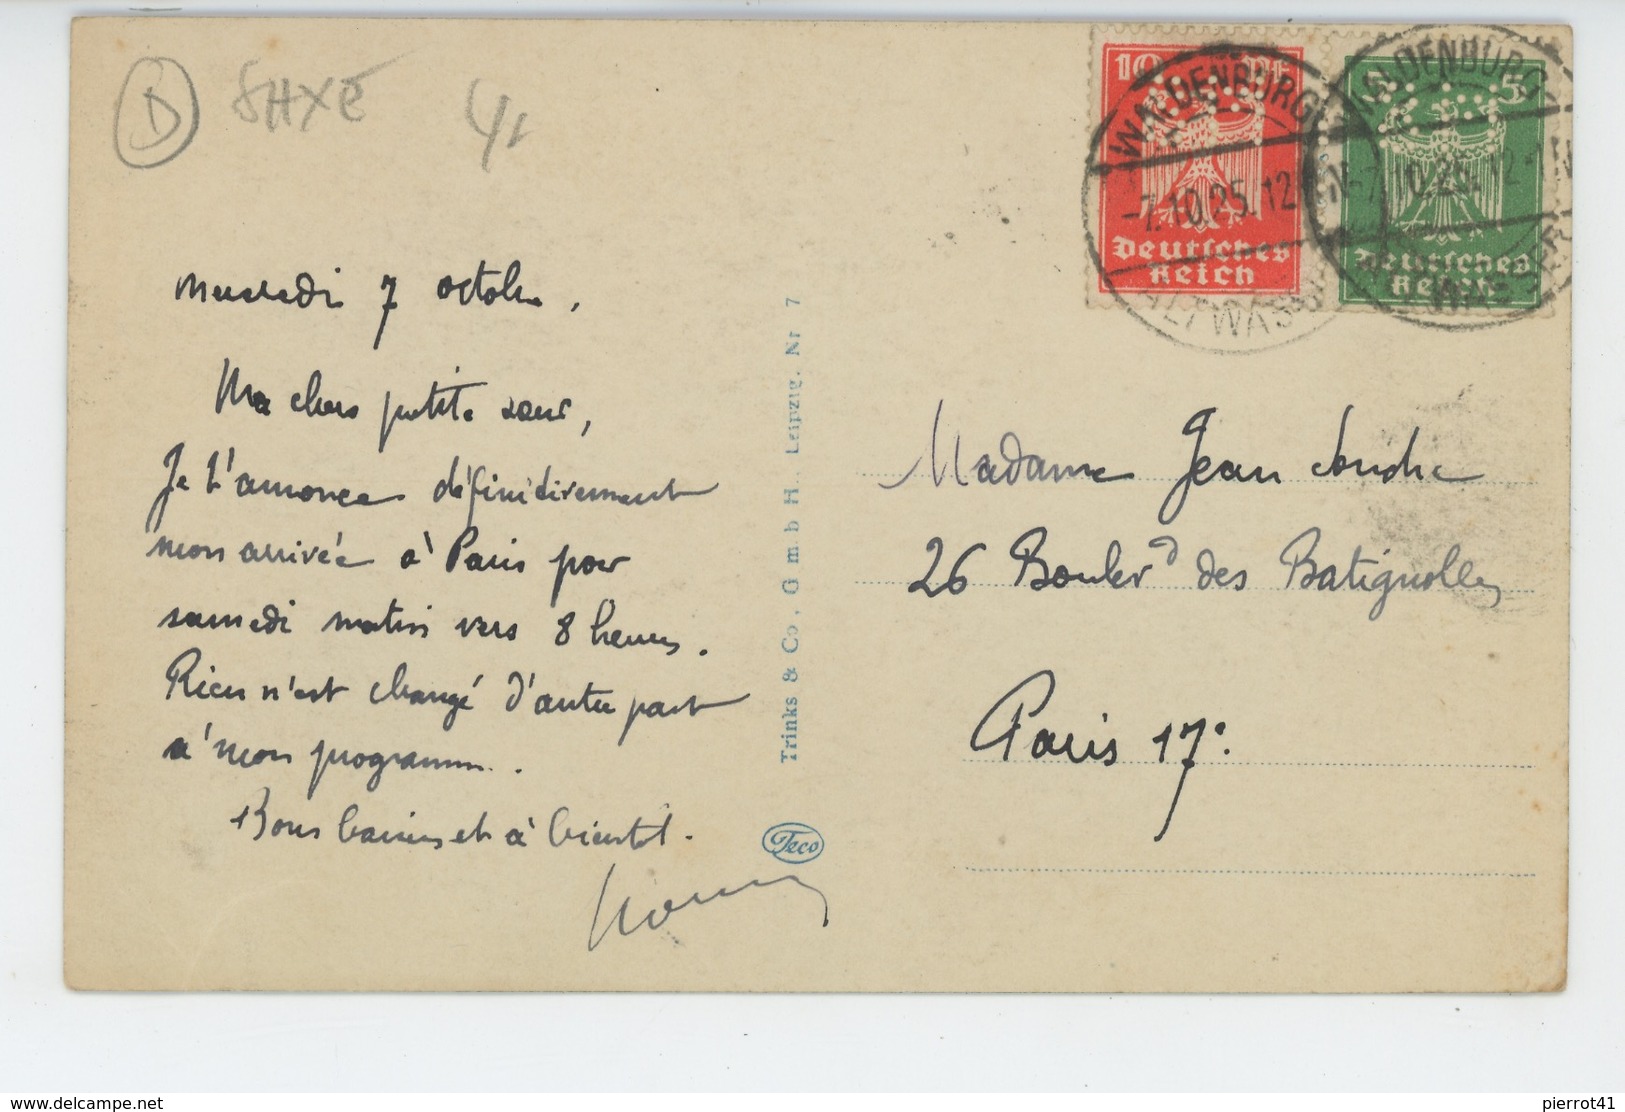 D
10
5
WALDENBURG
-7.10.25.12
ALTWASSER
Deutsches
Reich
WALDENBURG
-7.10.25.12
Deutsches
Reich
mercredi 7 octobre,
Ma chère petite sœur,
Je t'annonce définitivement
mon arrivée à Paris pour
samedi matin vers 8 heures.
Rien n'est changé d'autre part
à mon programme.
Bons baisers et à bientôt.
Trinks & Co, G m b H., Leipzig. Nr 7
Teco
Madame Jean
26 Boulevd des Batignolles
Paris 17e.
delcampe.net
pierrot41